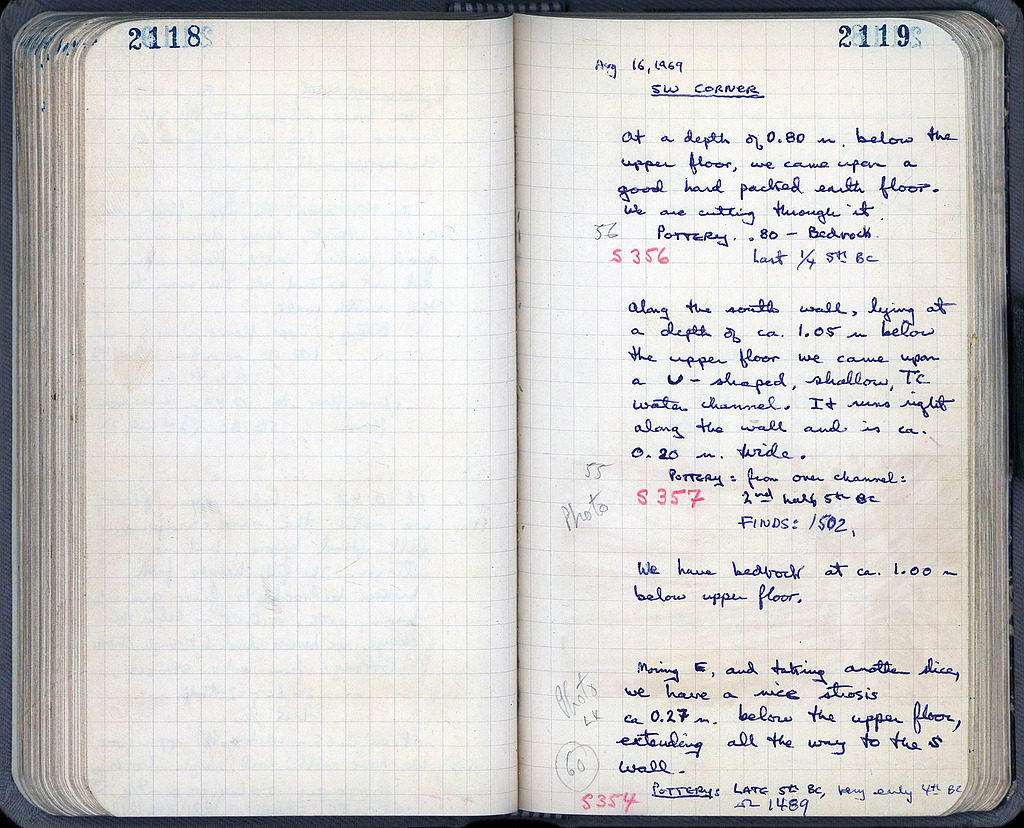 2118
2119
Aug 16, 1969
SW CORNER
At a depth of 0.80 m. below the
upper floor, we came upon a
good hard packed earth floor.
We are cutting through it.
56
POTTERY. .80 – Bedrock.
S 356
Last 1/4 5th BC
Along the south wall, lying at
a depth of ca. 1.05 m below
the upper floor we came upon
a U-shaped, shallow, TC
water channel. It runs right
along the wall and is ca.
0.20 m. wide.
55
POTTERY: from over channel:
S 357
2nd half 5th BC
Photo
FINDS: 1502,
We have bedrock at ca. 1.00 m
below upper floor.
Moving E, and taking another slice,
Photo
we have a nice strosis
ca 0.27 m. below the upper floor,
extending all the way to the S
wall.
60
POTTERY: LATE 5th BC, very early 4th BC
S354
1489